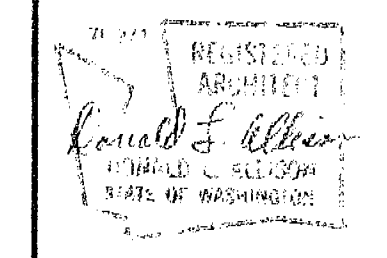 REGISTERED
ARCHITECT
Donald L. Allison
DONALD L. ALLISON
STATE OF WASHINGTON